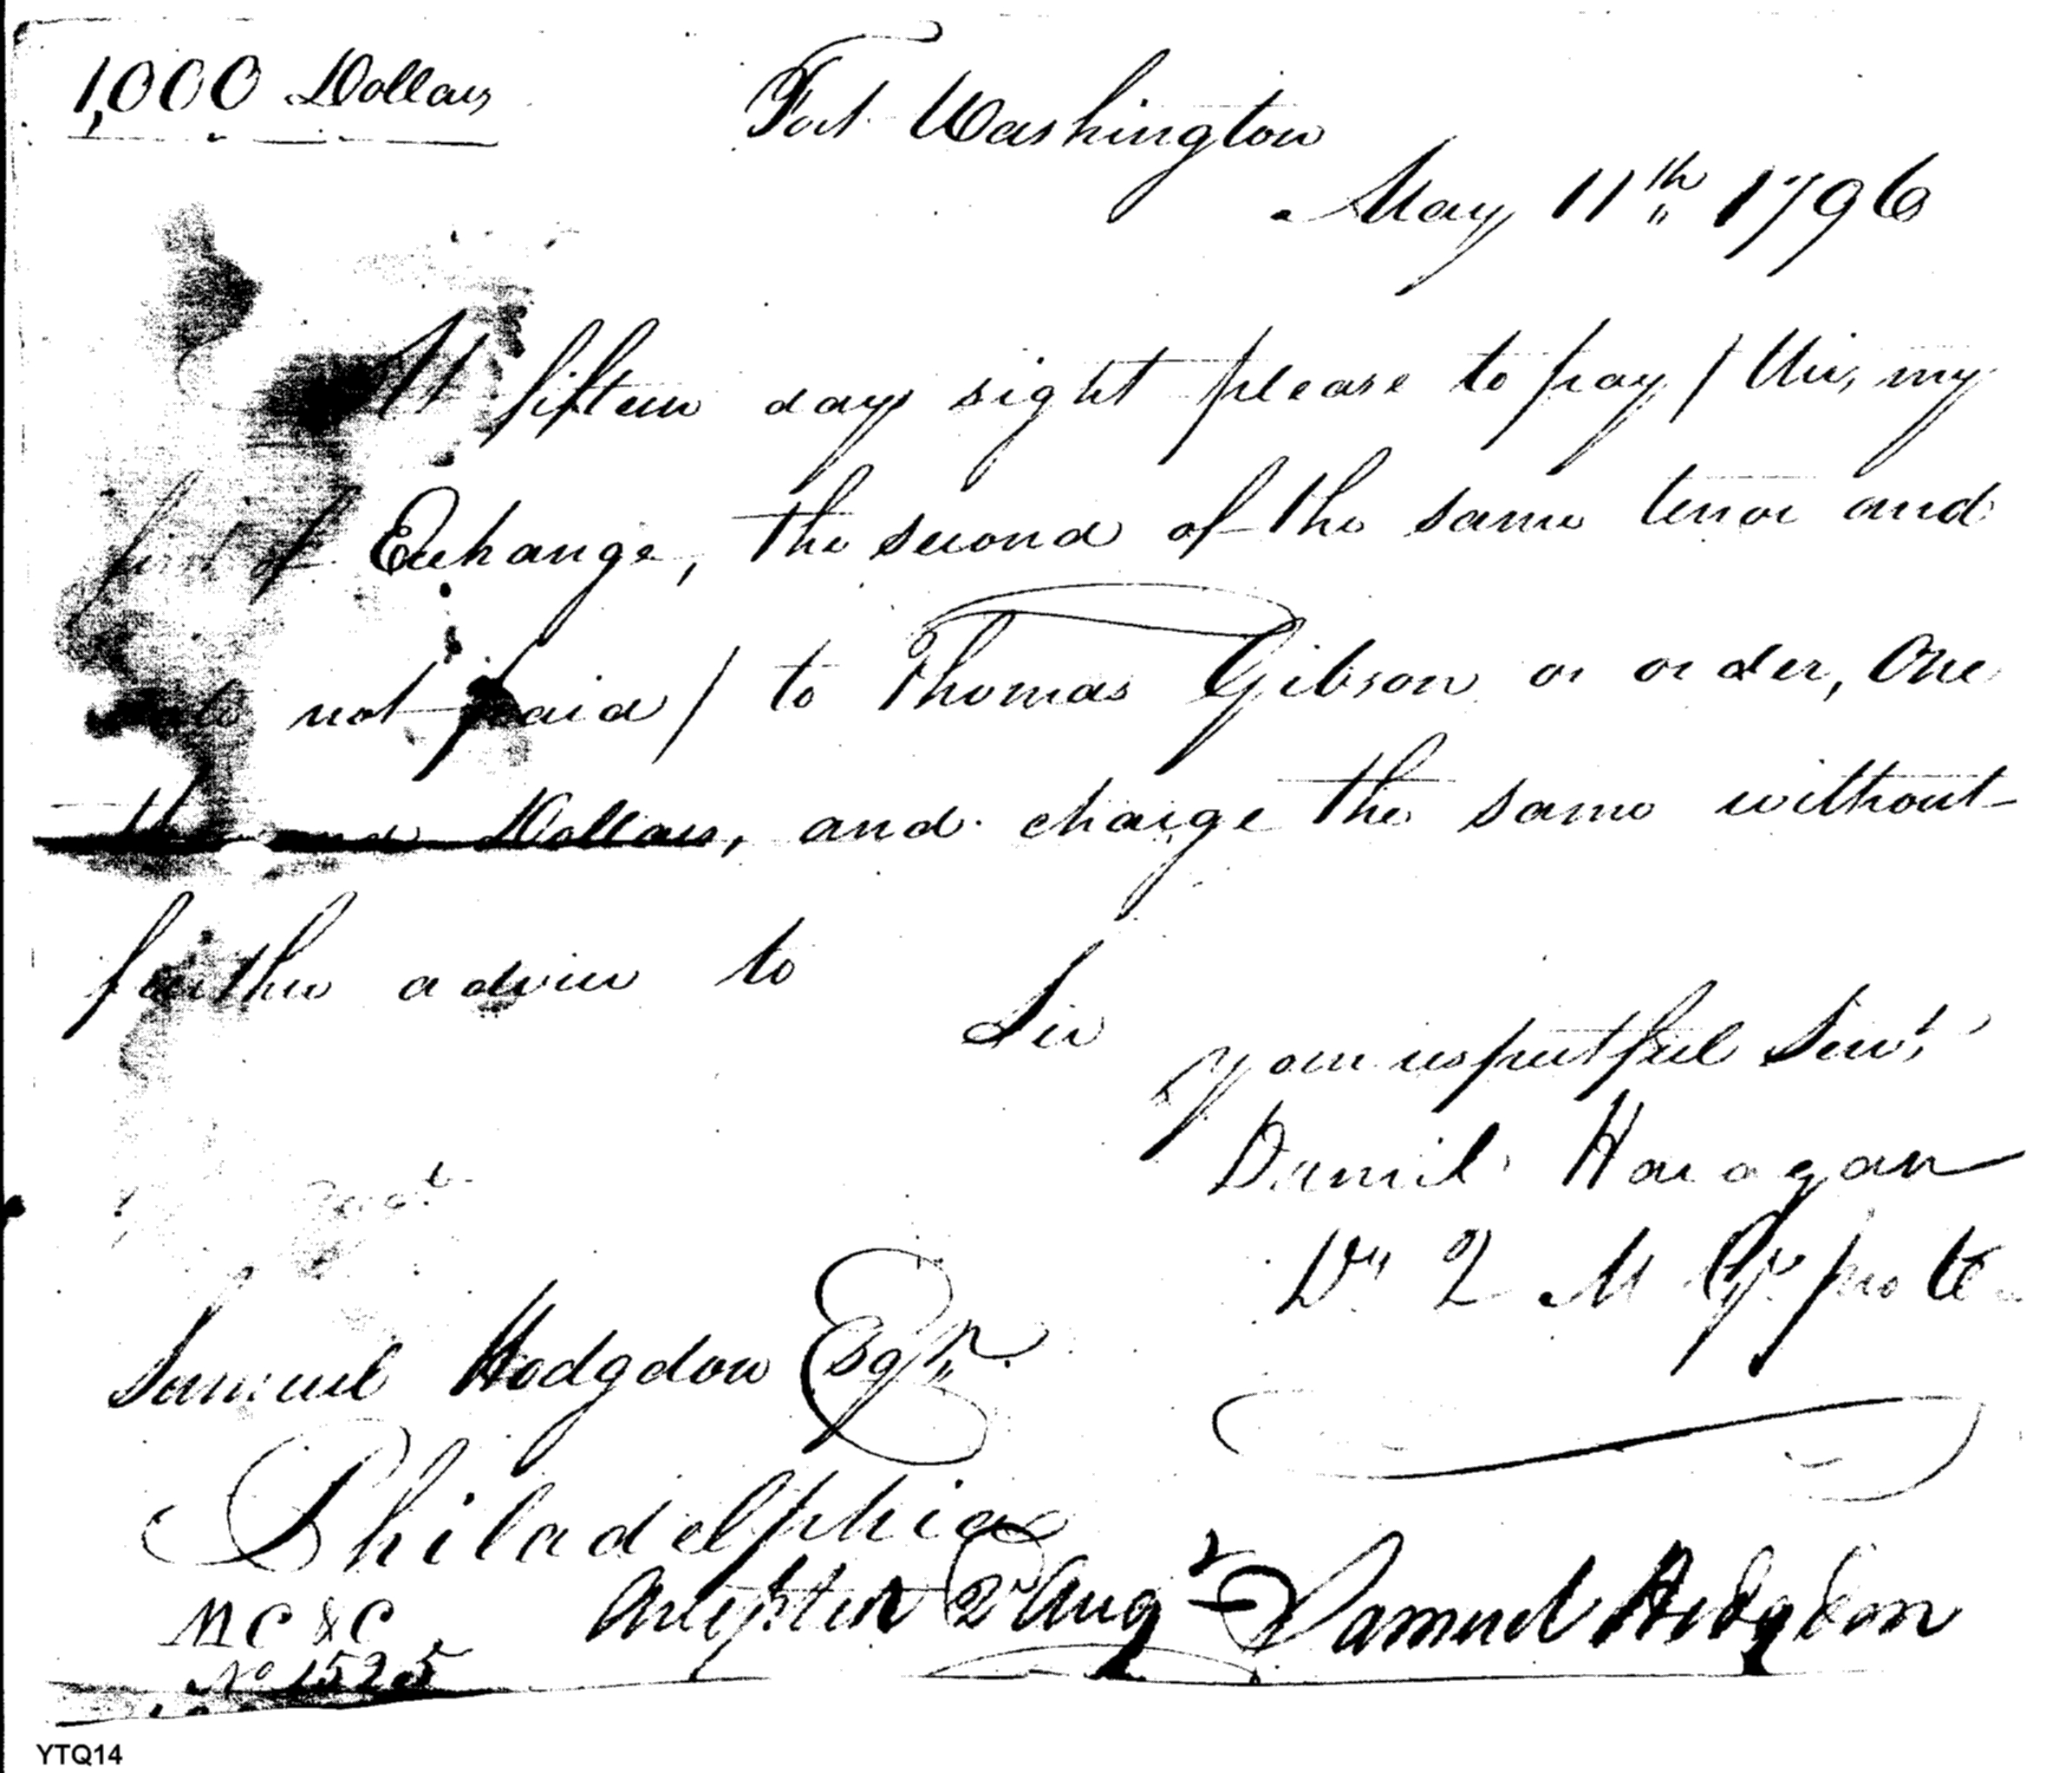 1,000 Dollars
Fort Washington
May 11th 1796
At fifteen days sight please to pay / this, my
first of Exchange, the second of the same tenor and
date not paid / to Thomas Gibson or order, One
thousand Dollars, and charge the same without
further advice to
Sir
your respectful Servt
Daniel Haragan
Samuel Hodgdon Esqr
Philadelphia
Accepted 2d Augt Samuel Hodgdon
M C & C
No 1525
YTQ14